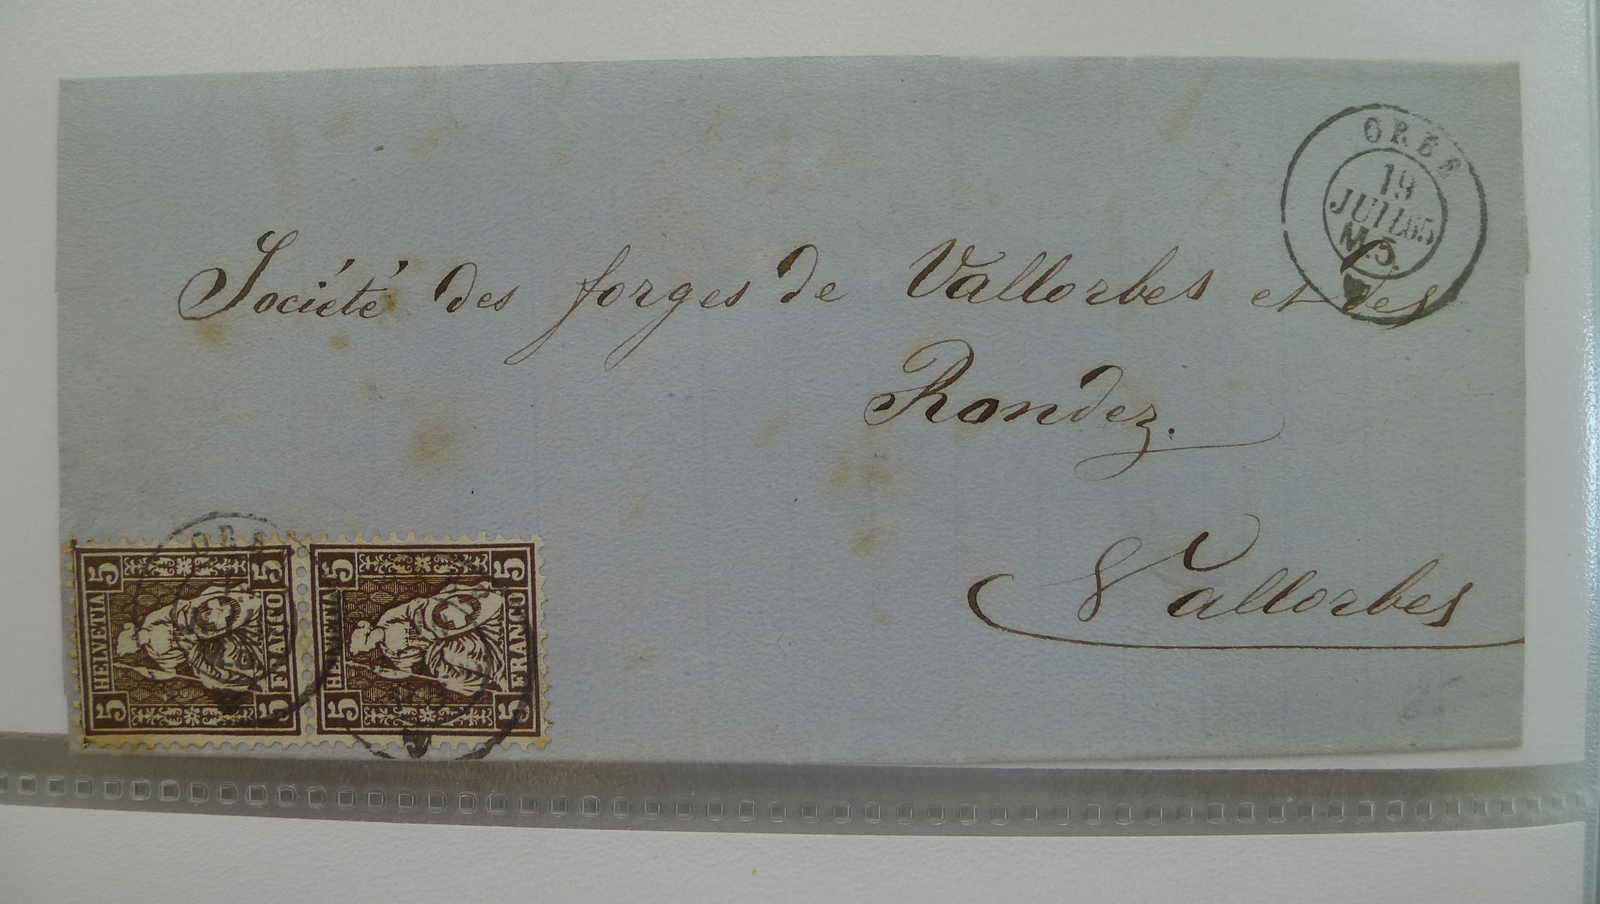 ORBE
19
JUIL 65
M.5.
Société des forges de Vallorbes et des
Rondez.
Vallorbes
ORBE
5 HELVETIA 5
5 FRANCO 5
5 HELVETIA 5
5 FRANCO 5